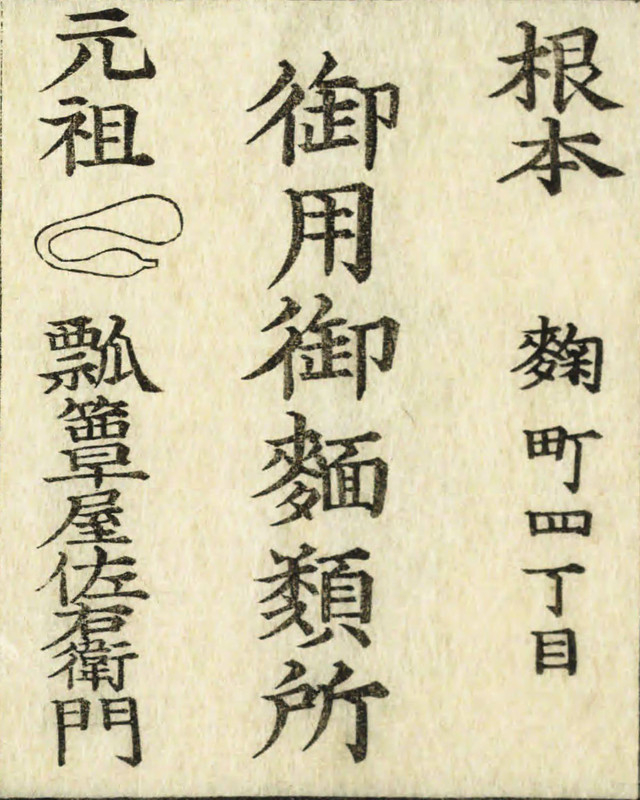 根本 麴町四丁目
御用御麵類所
元祖 瓢簞屋佐右衛門